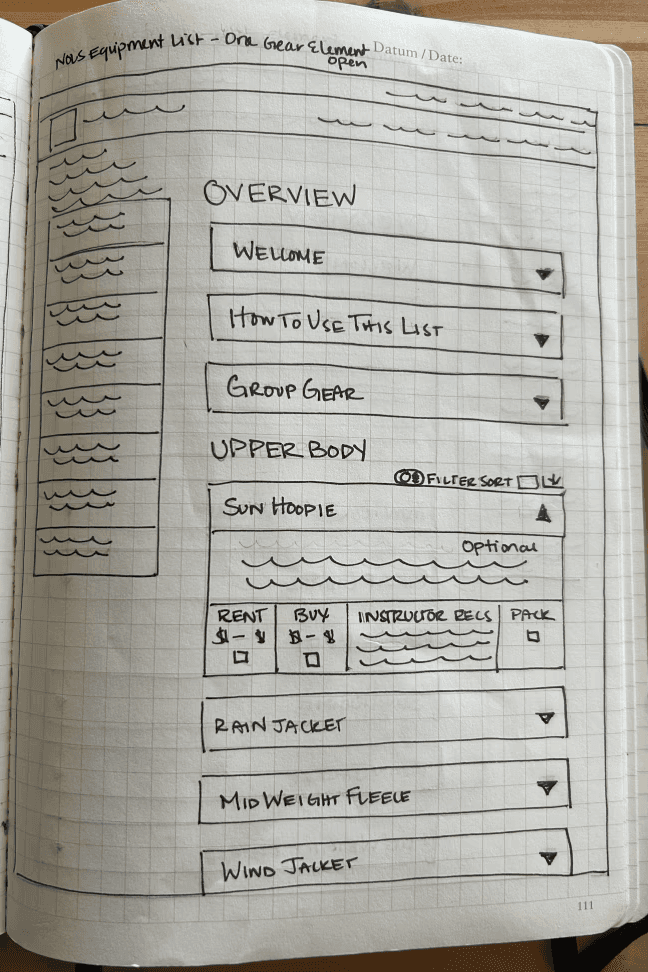 NOLS EQUIPMENT LIST - ONE GEAR ELEMENT
OPEN
Datum / Date:
OVERVIEW
WELCOME
HOW TO USE THIS LIST
GROUP GEAR
UPPER BODY
FILTER SORT
SUN HOODIE
Optional
RENT BUY INSTRUCTOR RECS PACK
$ - $ $ - $
RAIN JACKET
MID WEIGHT FLEECE
WIND JACKET
111